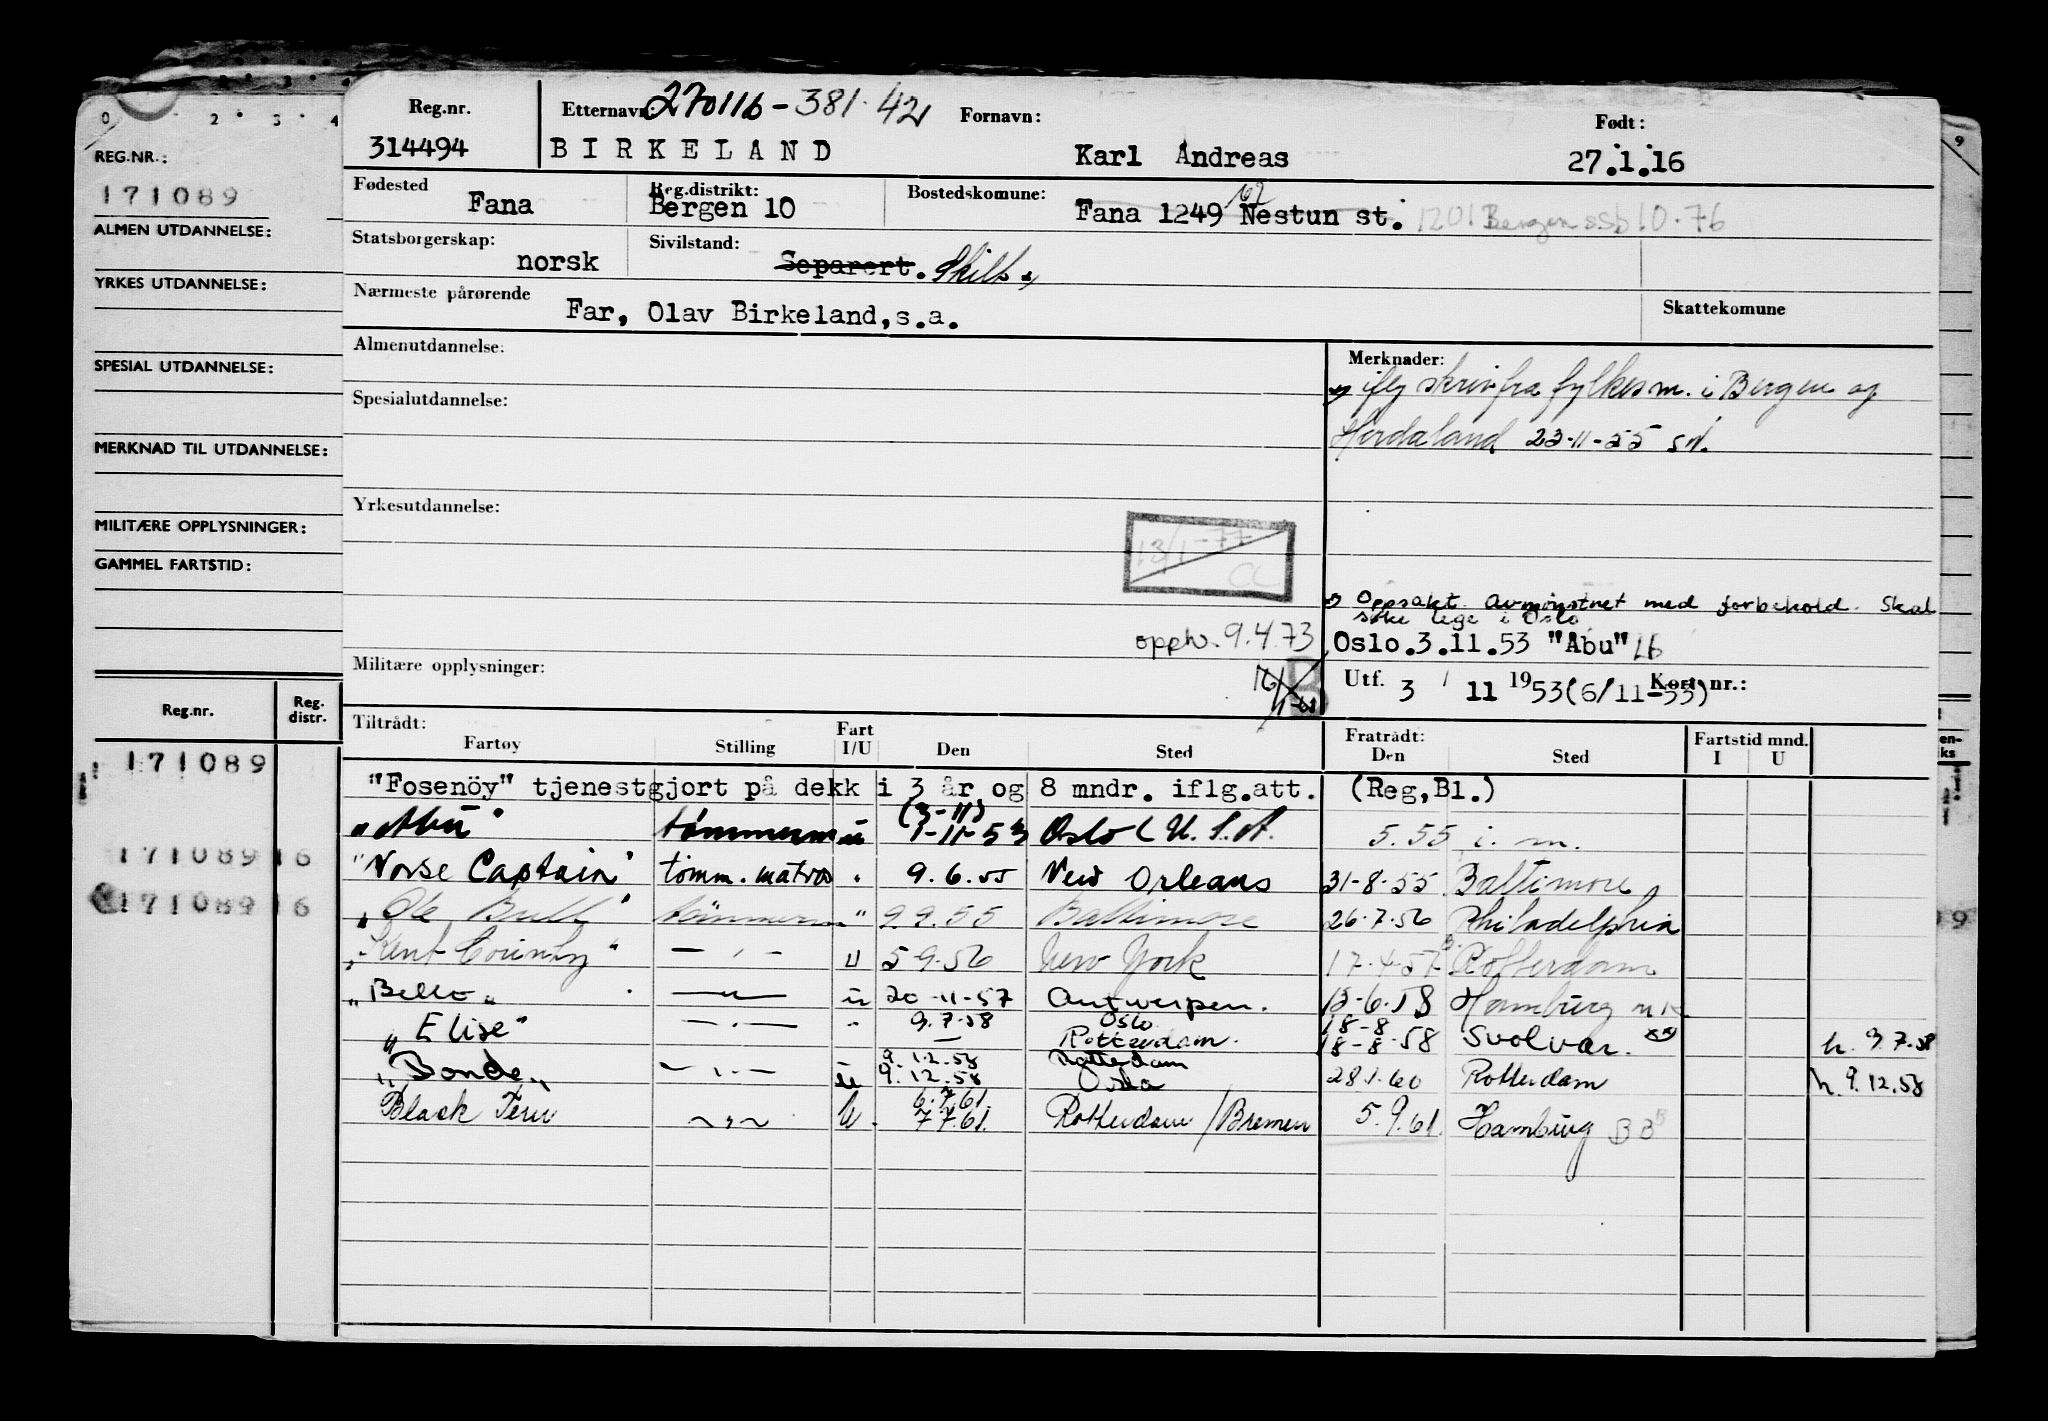 0 2 3 4
REG.NR.:
171089
ALMEN UTDANNELSE:
YRKES UTDANNELSE:
SPESIAL UTDANNELSE:
MERKNAD TIL UTDANNELSE:
MILITÆRE OPPLYSNINGER:
GAMMEL FARTSTID:
Reg.nr. Reg. distr.
171089
171089 16
171089 16
Reg.nr. Etternavn: 270116-381·42 Fornavn: Født:
314494 BIRKELAND Karl Andreas 27.1.16
Fødested Reg.distrikt: Bostedskomune:
Fana Bergen 10 Fana 1249 Nestun st. 1201 Bergen ssb 10.76
Statsborgerskap: Sivilstand:
norsk Separert. Skilt x)
Nærmeste pårørende Skattekomune
Far, Olav Birkeland, s.a.
Almenutdannelse: Merknader:
x) iflg skriv fra fylkesm. i Bergen og
Spesialutdannelse:
Hordaland 23-11-55
Yrkesutdannelse:
13/1-77
CL
Oppsakt. avmønstret med forbehold. Skal
søke lege i Oslo
opph. 9.4.73 Oslo.3.11.53 "Abu"
Militære opplysninger: Utf. 3 / 11 1953(6/11-53) Kort nr.:
Tiltrådt: Fratrådt: Fartstid mnd.
Fartøy Stilling Fart I/U Den Sted Den Sted I U
"Fosenöy" tjenestgjort på dekk i 3 år og 8 mndr. iflg.att. (Reg,Bl.)
(3-11)
"Abu" tømmerm u 1-11-53 Oslo ( U.S.A. 5.55 i. m.
"Norse Captain" tømm. matros " 9.6.55 New Orleans 31-8-55 Baltimore
"Ole Bull" tømmerm " 9 9.55 Baltimore 26.7.56 Philadelphia
"Kent County" — " — u 5-9.56 New York 17.4.57 Rotterdam
"Bello" — " — u 20-11-57 Antwerpen. 13-6.58 Hamburg
9.7.58 Oslo 18-8
"Elise" — " — " — Rotterdam. 18-8-58 Svolvær. xx) h. 3.7.58
9.12.58 Rotterdam
"Bonde" — " — u 9.12.58 Oslo 28.1.60 Rotterdam h. 9.12.58
6.7.61
Black Tern — " — U. 7 7.61. Rotterdam / Bremen 5.9.61. Hamburg BB